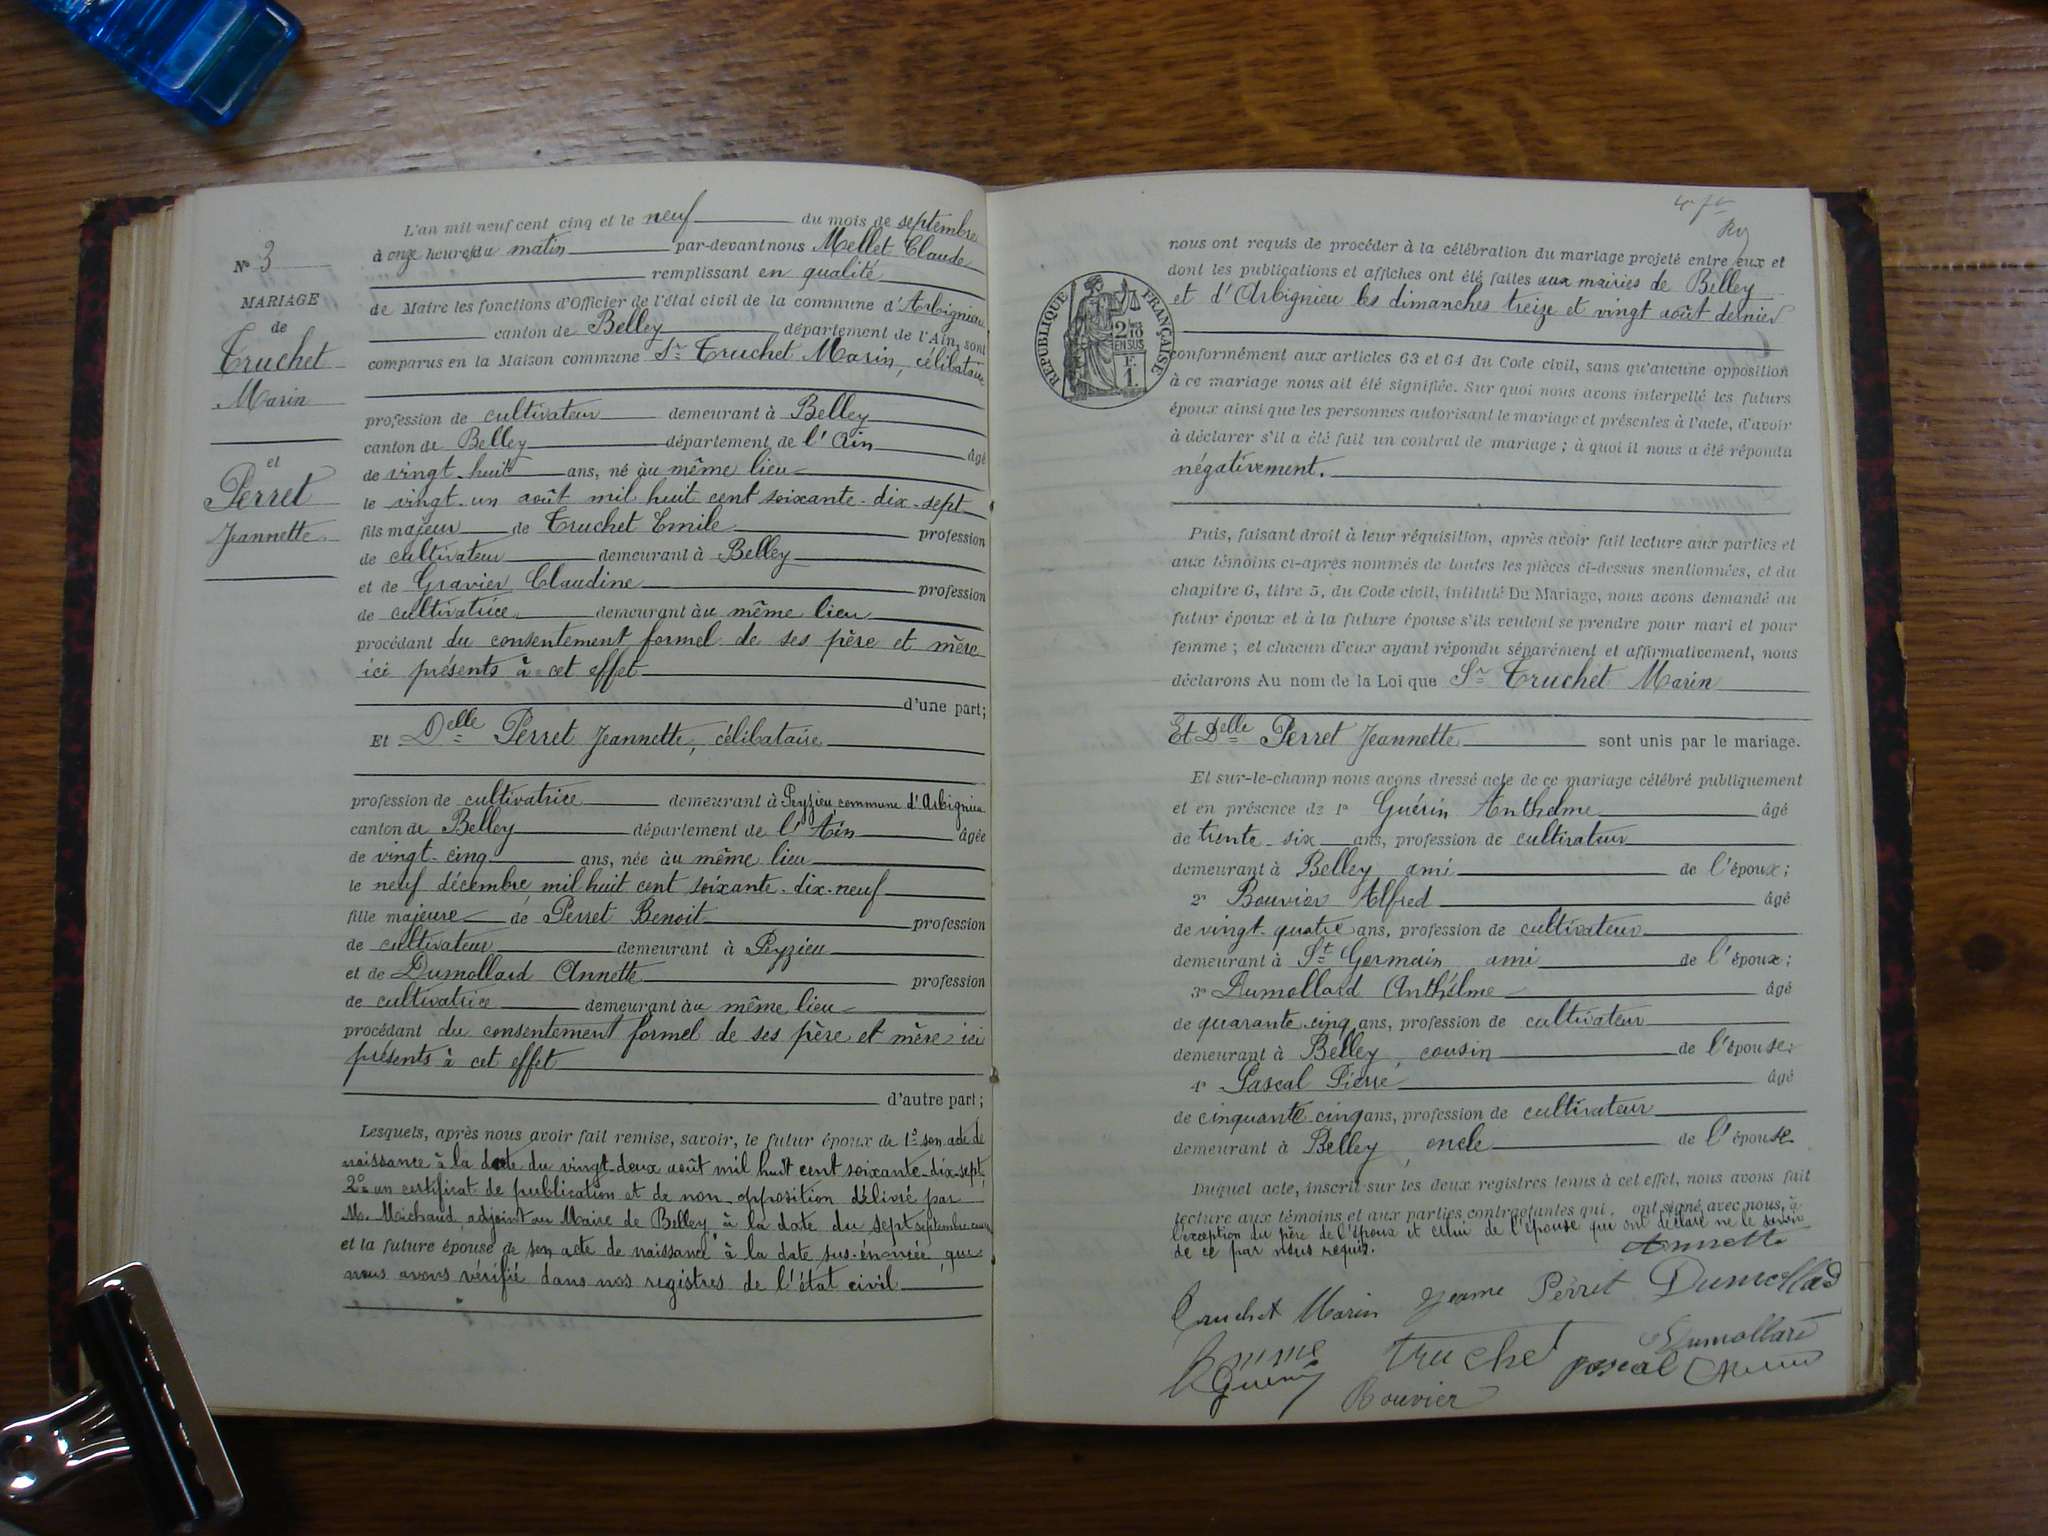 N° 3
MARIAGE
de
Truchet
Marin
et
Perret
Jeannette
L'an mil neuf cent cinq et le neuf du mois de septembre
à onze heures du matin par-devant nous Mellet Claude
remplissant en qualité
de Maire les fonctions d'Officier de l'état civil de la commune d'Arbignieu
canton de Belley département de l'Ain, sont
comparus en la Maison commune Sr Truchet Marin, célibataire
profession de cultivateur demeurant à Belley
canton de Belley département de l'Ain âgé
de vingt-huit ans, né au même lieu
le vingt-un août mil huit cent soixante-dix-sept
fils majeur de Truchet Emile profession
de cultivateur demeurant à Belley
et de Gravier Claudine profession
de cultivatrice demeurant au même lieu
procédant du consentement formel de ses père et mère
ici présents à cet effet
d'une part;
Et Delle Perret Jeannette, célibataire
profession de cultivatrice demeurant à Peyzieu commune d'Arbignieu
canton de Belley département de l'Ain âgée
de vingt-cinq ans, née au même lieu
le neuf décembre mil huit cent soixante-dix-neuf
fille majeure de Perret Benoit profession
de cultivateur demeurant à Peyzieu
et de Dumollard Annette profession
de cultivatrice demeurant au même lieu
procédant du consentement formel de ses père et mère ici
présents à cet effet
d'autre part;
Lesquels, après nous avoir fait remise, savoir, le futur époux de 1° son acte de
naissance à la date du vingt-deux août mil huit cent soixante-dix-sept,
2° un certificat de publication et de non-opposition délivré par
M. Michaud adjoint au Maire de Belley à la date du sept septembre courant
et la future épouse de son acte de naissance à la date sus-énoncée que
nous avons vérifié dans nos registres de l'état civil
REPUBLIQUE FRANÇAISE
2/10es EN SUS
F. 1.
nous ont requis de procéder à la célébration du mariage projeté entre eux et
dont les publications et affiches ont été faites aux mairies de Belley
et d'Arbignieu les dimanches treize et vingt août dernier
conformément aux articles 63 et 64 du Code civil, sans qu'aucune opposition
à ce mariage nous ait été signifiée. Sur quoi nous avons interpellé les futurs
époux ainsi que les personnes autorisant le mariage et présentes à l'acte, d'avoir
à déclarer s'il a été fait un contrat de mariage ; à quoi il nous a été répondu
négativement.
Puis, faisant droit à leur réquisition, après avoir fait lecture aux parties et
aux témoins ci-après nommés de toutes les pièces ci-dessus mentionnées, et du
chapitre 6, titre 5, du Code civil, intitulé Du Mariage, nous avons demandé au
futur époux et à la future épouse s'ils veulent se prendre pour mari et pour
femme ; et chacun d'eux ayant répondu séparément et affirmativement, nous
déclarons Au nom de la Loi que Sr Truchet Marin
Et Delle Perret Jeannette sont unis par le mariage.
Et sur-le-champ nous avons dressé acte de ce mariage célébré publiquement
et en présence de 1° Guérin Anthelme âgé
de trente-six ans, profession de cultivateur
demeurant à Belley ami de l'époux;
2° Bouvier Alfred âgé
de vingt-quatre ans, profession de cultivateur
demeurant à St Germain ami de l'époux;
3° Dumollard Anthelme âgé
de quarante-cinq ans, profession de cultivateur
demeurant à Belley, cousin de l'épouse;
4° Pascal Pierre âgé
de cinquante-cinq ans, profession de cultivateur
demeurant à Belley, oncle de l'épouse
Duquel acte, inscrit sur les deux registres tenus à cet effet, nous avons fait
lecture aux témoins et aux parties contractantes qui ont signé avec nous, à
l'exception du père de l'époux et celui de l'épouse qui ont déclaré ne le savoir
de ce par nous requis.
Annette
Truchet Marin Jeanne Perret Dumollard
Truchet Dumollard
Guérin pascal
Bouvier